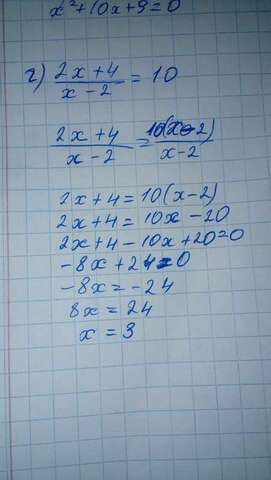 x²+10x+9=0
г) (2x+4)/(x-2) = 10
(2x+4)/(x-2) = 10(x-2)/(x-2)
2x+4=10(x-2)
2x+4=10x-20
2x+4-10x+20=0
-8x+24=0
-8x=-24
8x=24
x=3